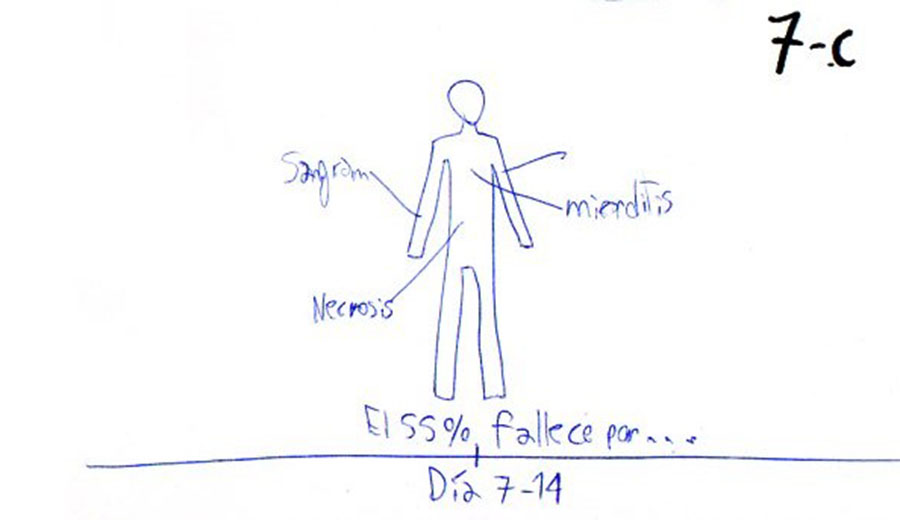 7-C
mierditis
Necrosis
El 55% fallece por....
Día 7-14